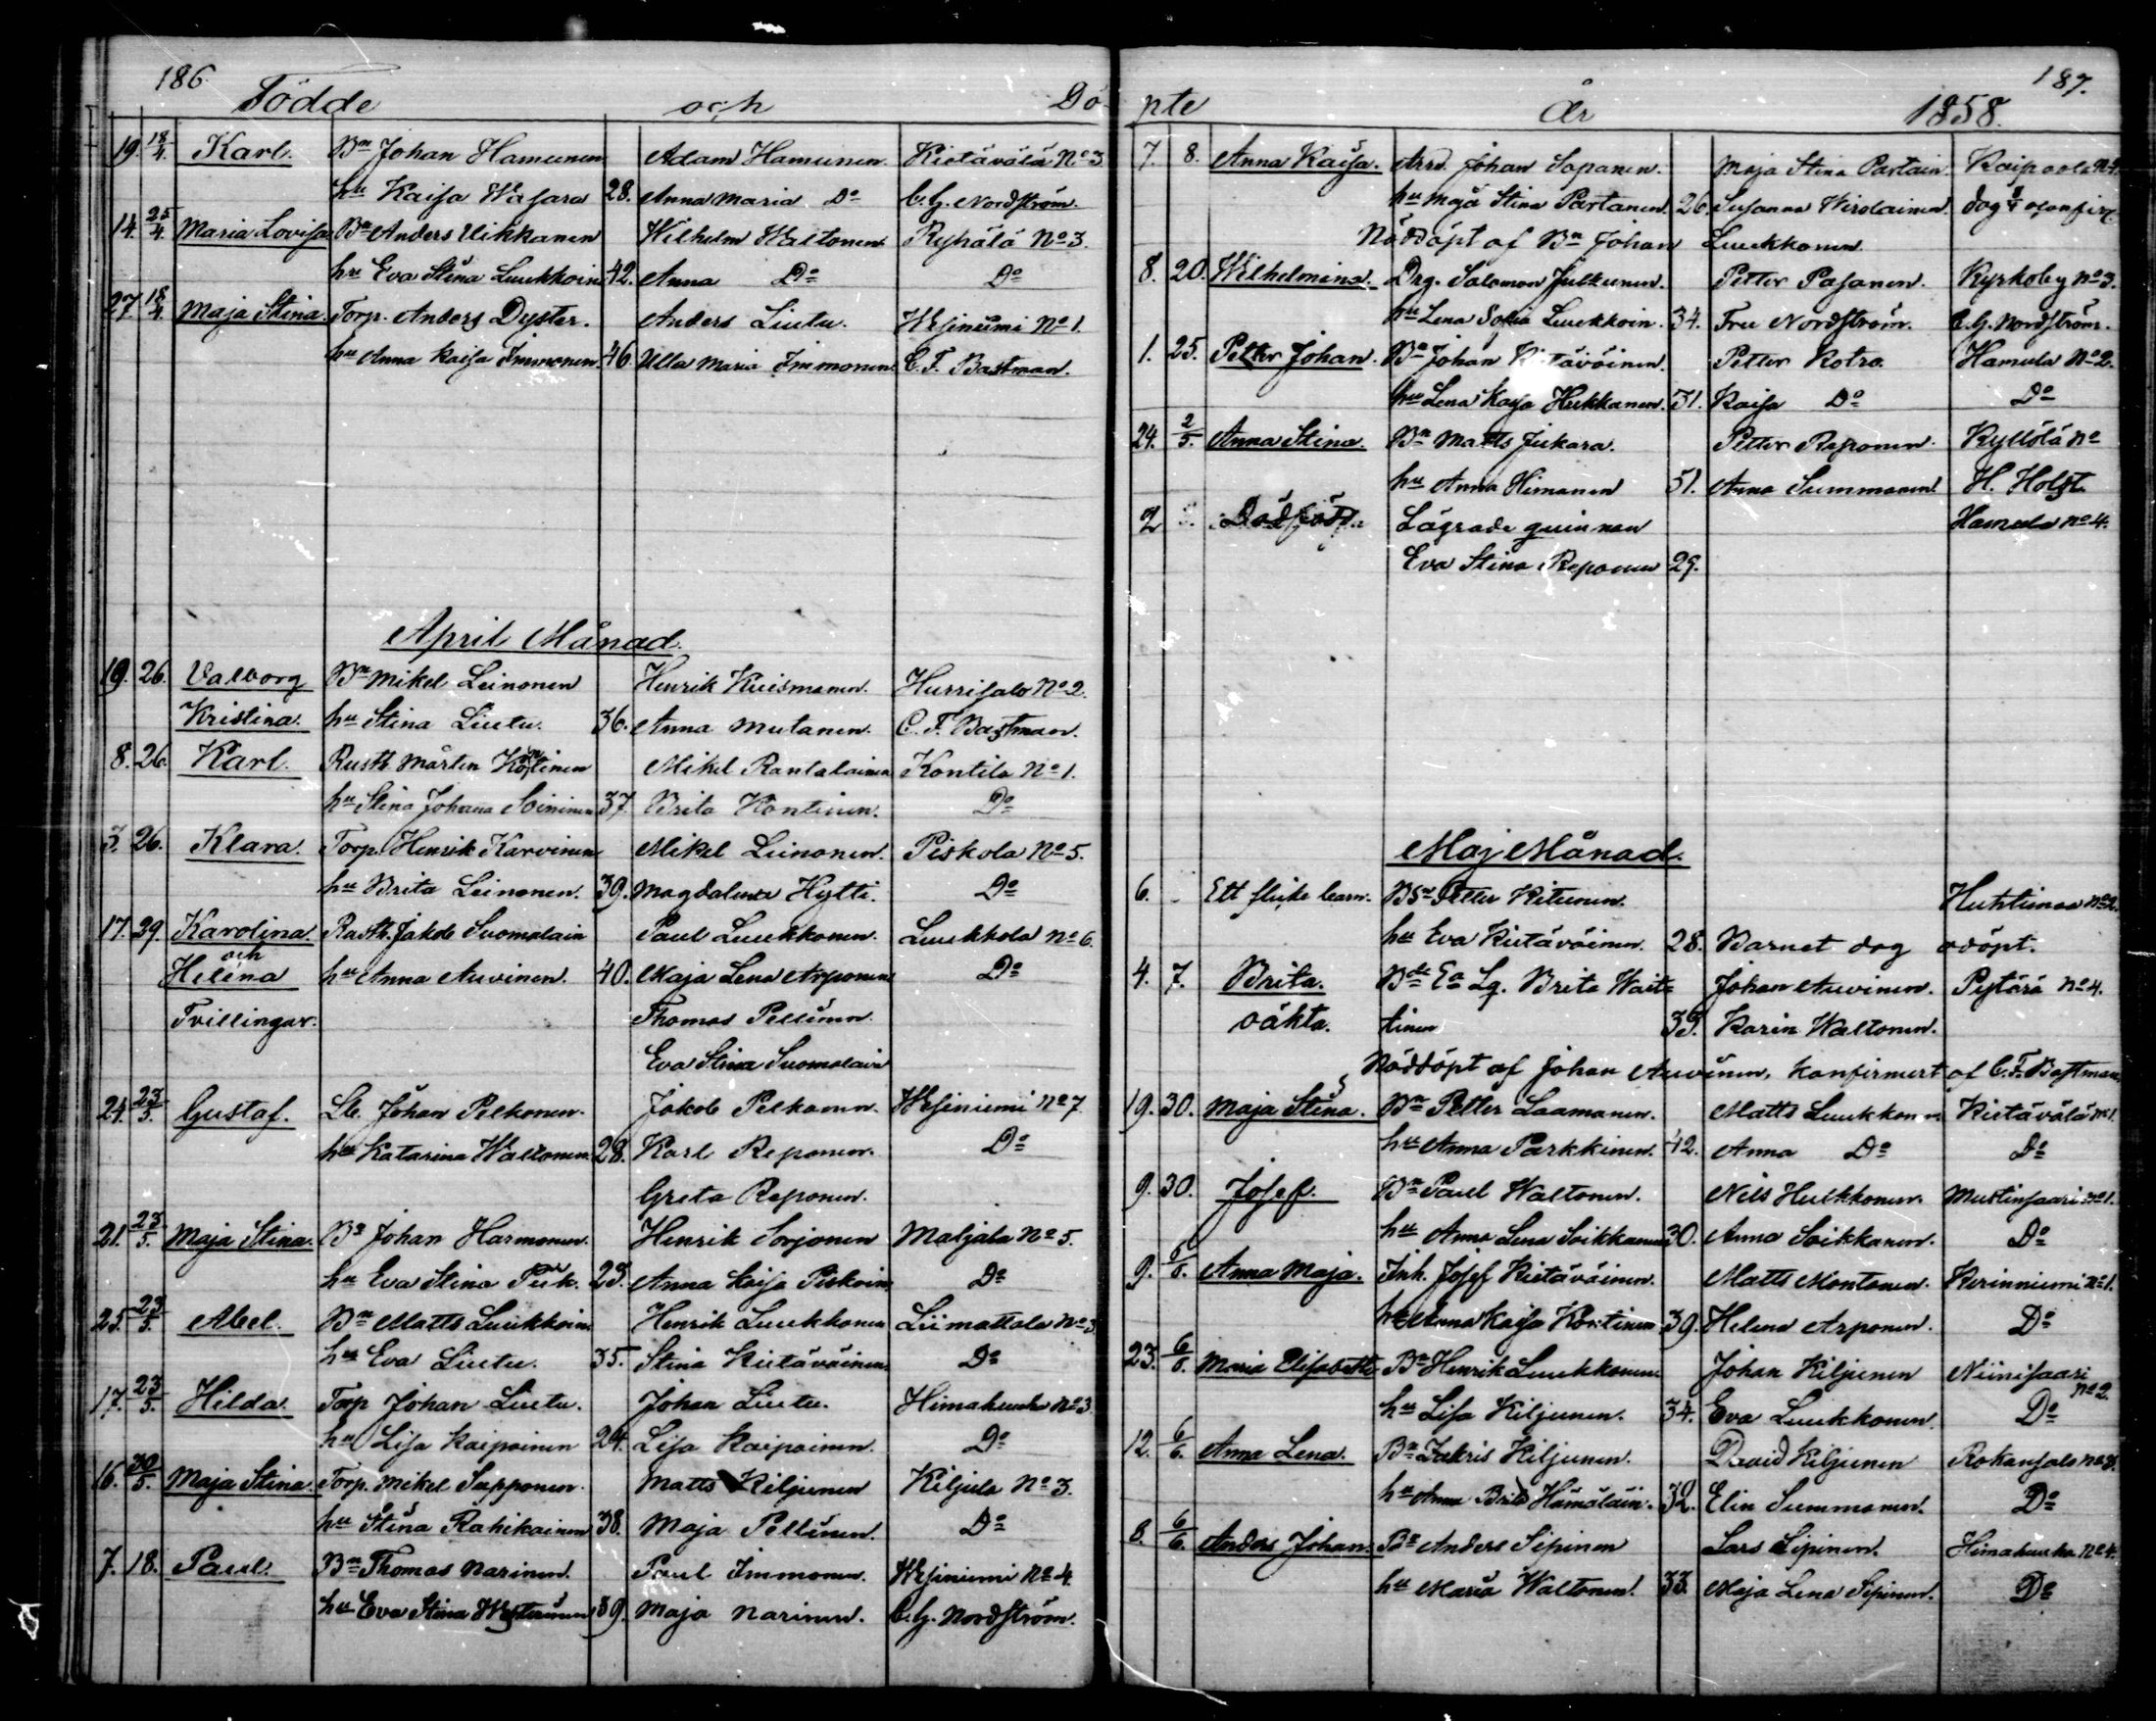 186.
Födde och Dö-
19. 18/4. Karl. Bn Johan Hamunen Adam Hamunen. Kietävälä No 3.
hu Kaisa Wasara 28. Anna Maria Do C. G. Nordström.
14. 25/4. Maria Lovisa Bn Anders Uikkanen Wilhelm Waltonen Ryhälä No 3.
hu Eva Stina Luukkoin 42. Anna Do Do
27. 18/4. Maja Stina. Torp. Anders Dyster. Anders Liutu. Wesiniemi No 1.
hu Anna Kaisa Immonen. 46. Ulla Maria Immonen C. F. Bastman.
April Månad.
19. 26. Valborg Bn Mikel Leinonen Henrik Kuismanen. Hurrisalo No 2.
Kristina. hu Stina Liutu. 36. Anna Mutanen. C. F. Bastman.
8. 26. Karl. Rusth Mårten Kontinen Mikel Rantalainen Kontila No 1.
hu Stina Johana Soininen 37. Brita Kontinen. Do
3. 26. Klara. Torp. Henrik Karvinen Mikel Leinonen. Piskola No 5.
hu Brita Leinonen. 39. Magdalena Hytti. Do
17. 29. Karolina. Rusth. Jakob Suomalain Paul Luukkonen. Luukkola No 6.
och
Helena hu Anna Auvinen. 40. Maja Lena Arponen Do
Tvillingar. Thomas Pellinen.
Eva Stina Suomalain
24. 23/5. Gustaf. Lb. Johan Pelkonen. Jakob Pelkonen. Wesiniemi No 7
hu Katarina Waltonen. 28. Karl Reponen. Do
Greta Reponen.
21. 23/5. Maja Stina. Bn Johan Harmonen. Henrik Sorjonen Maljala No 5.
hu Eva Stina 23. Anna Kaisa Piskoin. Do
25. 23/5. Abel. Bn Matts Luukkoin Henrik Luukkonen Liimattala No 3
hu Eva Liutu. 35. Stina Kietäväinen. Do
17. 23/5. Hilda. Torp Johan Liutu. Johan Liutu. Himahuuha No 3
hu Lisa Kaipainen 24. Lisa Kaipainen. Do
16. 30/5. Maja Stina. Torp. Mikel Supponen. Matts Kiljunen Kiljula No 3.
hu Stina Rahikainen 38. Maja Pellinen. Do
7. 18. Paul. Bn Thomas Narinen. Paul Immonen. Wesiniemi No 4.
hu Eva Stina Westerinen 39. Maja Narinen. C. G. Nordström.
187.
pte År 1858.
7. 8. Anna Kaisa. Johan Sopanen. Maja Stina Partain.
hu Maja Stina Partanen. 26. Susanna Wirolainen. dog
Nöddöpt af Bn Johan Luukkonen.
8. 20. Wilhelmina. Drg. Salomon Julkunen. Petter Pasanen. Kyrkoby No 3.
hu Lena Sofia Luukkoin. 34. Fru Nordström. C. G. Nordström.
1. 25. Petter Johan. Bn Johan Kietäväinen. Petter Kotro. Hamula No 2.
hu Lena Kaisa Hukkanen. 31. Kaisa Do Do
24. 2/5. Anna Stina. Bn Matts Jukara. Petter Reponen. Kyllölä No
hu Anna Himanen 31. Anna Summanen. H. Holst
2 Dödfödt. Lägrade quinnan Hamula No 4.
Eva Stina Reponen 29.
Maj Månad.
6. Ett flicke barn. Petter Kitunen. Huhtimaa No 2.
hu Eva Kietäväinen. 28. Barnet dog odöpt.
4. 7. Brita. Lg. Brita Wait- Johan Auvinen. Pytärä No 4.
oäkta. tinen 39. Karin Waltonen.
Nöddöpt af Johan Auvinen, konfirmert af C. F. Bastman
19. 30. Maja Stina. Bn Petter Laamanen. Matts Luukkonen Kietävälä No 1.
hu Anna Parkkinen. 42. Anna Do Do
9. 30. Josef. Bn Paul Waltonen. Nils Hulkkonen. Mustinsaari No 1.
hu Anna Lena Soikkanen 30. Anna Soikkanen. Do
9. 6/6. Anna Maja. Inh. Josef Kietäväinen. Matts Montonen. Kerinniemi No 1.
hu Anna Kaisa Kontinen 39. Helena Arponen. Do
23. 6/6. Maria Elisabeth Bn Henrik Luukkonen Johan Kiljunen Niinisaari
No 2.
hu Lisa Kiljunen. 34. Eva Luukkonen. Do
12. 6/6. Anna Lena. Bn Zakris Kiljunen. David Kiljunen Rokansalo No 8.
hu Anna Brita Hämäläin. 32. Elin Summanen. Do
8. 6/6. Anders Johan. Bn Anders Sipinen Lars Sipinen. Himahuuha No 4.
hu Maria Waltonen. 33. Maja Lena Sipinen. Do